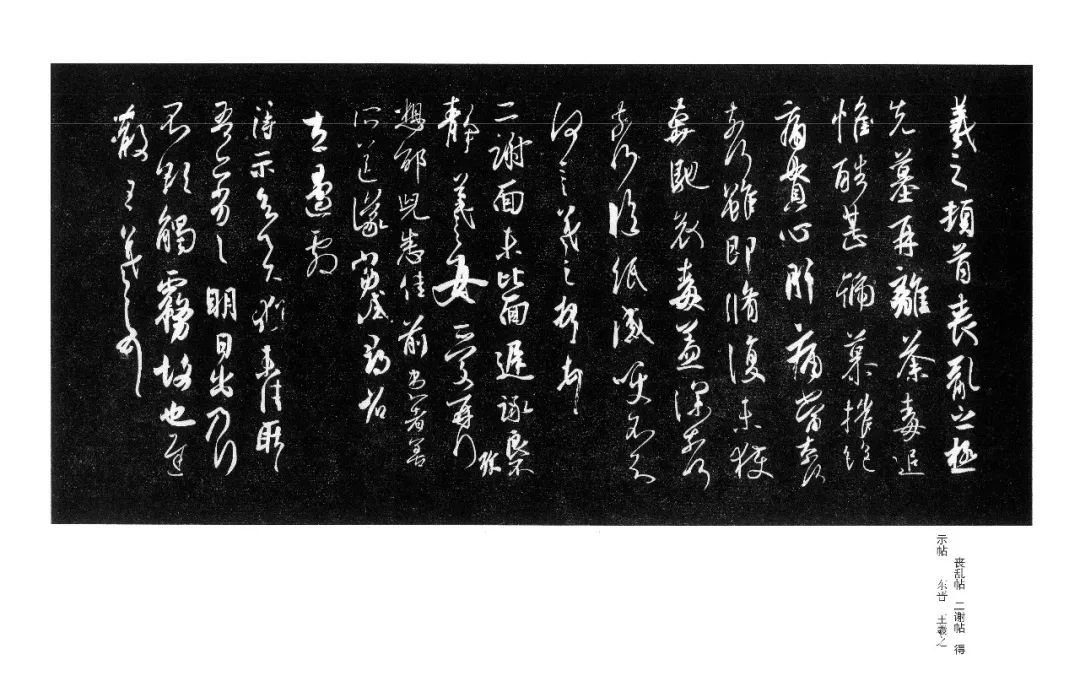 羲之頓首喪亂之極
先墓再離荼毒追
惟酷甚號慕摧絶
痛貫心肝痛當奈何
奈何雖即脩復未獲
奔馳哀毒益深奈何
奈何臨紙感哽不知
何言羲之頓首頓首
二謝面未比面遲詠良
靜羲之女愛再拜
想邵兒悉佳前患者善
所送議當試尋省
左邊劇
得示知足下猶未佳耿耿
吾亦劣劣明日出乃行
不欲觸霧故也遲
散王羲之頓首
丧乱帖 二谢帖 得
示帖 东晋 王羲之